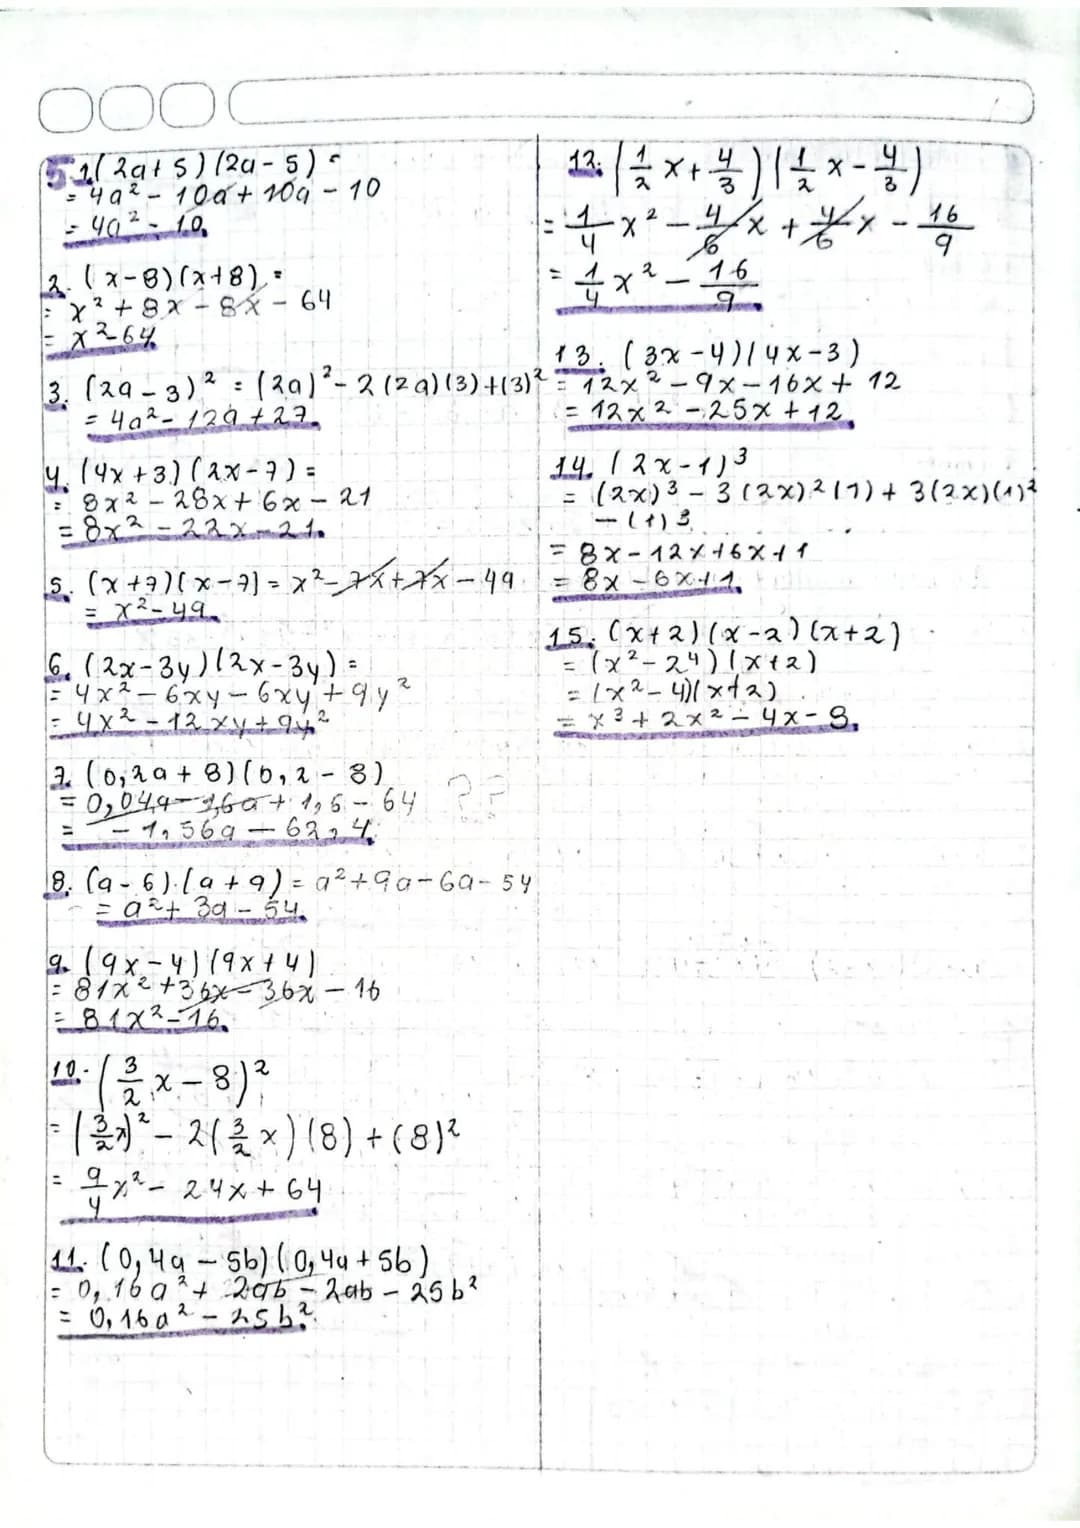 5 1. (2a+5)(2a-5) =
= 4a² - 10a + 10a - 10
= 4a² - 10.
2. (x-8)(x+8) =
= x² + 8x - 8x - 64
= x²-64
3. (2a-3)² = (2a)² - 2(2a)(3)+(3)²
= 4a² - 12a + 27.
4. (4x+3)(2x-7) =
= 8x² - 28x + 6x - 21
= 8x² - 22x - 21.
5. (x+7)(x-7) = x² - 7x + 7x - 49
= x²-49.
6. (2x-3y)(2x-3y) =
= 4x² - 6xy - 6xy + 9y²
= 4x² - 12xy + 9y²
7. (0,2a + 8)(0,2 - 8)
= 0,04a - 1,6a + 1,6 - 64 ??
= - 1,56a - 62,4.
8. (a-6).(a+9) = a² + 9a - 6a - 54
= a² + 3a - 54.
9. (9x-4)(9x+4)
= 81x² + 36x - 36x - 16
= 81x² - 16.
10. (3/2 x - 8)²
= (3/2 x)² - 2(3/2 x)(8) + (8)²
= 9/4 x² - 24x + 64
11. (0,4a - 5b)(0,4a + 5b)
= 0,16a² + 2ab - 2ab - 25b²
= 0,16a² - 25b².
12. (1/2 x + 4/3)(1/2 x - 4/3)
= 1/4 x² - 4/6 x + 4/6 x - 16/9
= 1/4 x² - 16/9
13. (3x-4)(4x-3)
= 12x² - 9x - 16x + 12
= 12x² - 25x + 12.
14. (2x-1)³
= (2x)³ - 3(2x)²(1) + 3(2x)(1)²
- (1)3.
= 8x - 12x + 6x + 1
= 8x - 6x + 1.
15. (x+2)(x-2)(x+2)
= (x² - 2⁴)(x+2)
= (x² - 4)(x+2)
= x³ + 2x² - 4x - 8.